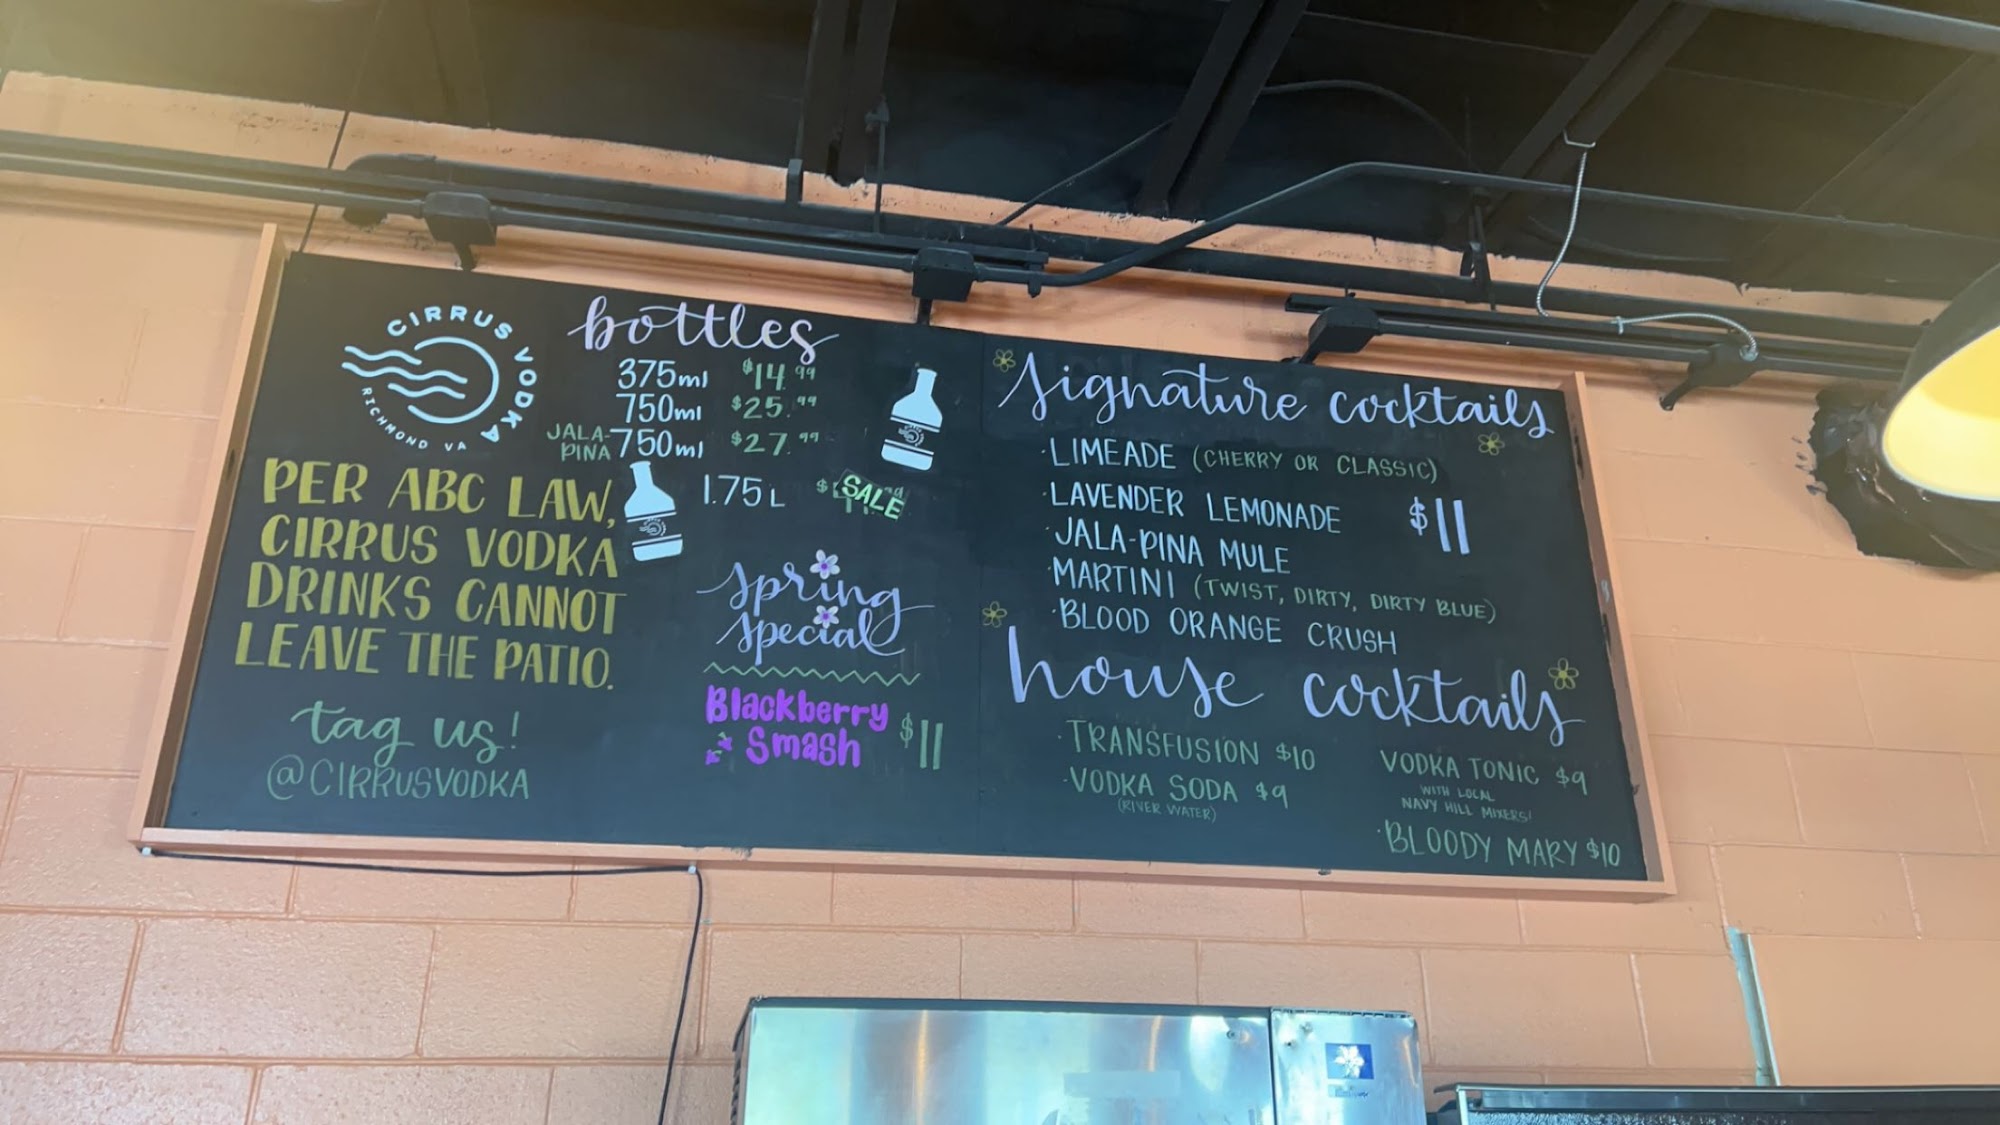 CIRRUS VODKA
RICHMOND VA
bottles
375ml $14.99
750ml $25.99
JALA-PINA 750ml $27.99
1.75L $ SALE
PER ABC LAW,
CIRRUS VODKA
DRINKS CANNOT
LEAVE THE PATIO.
tag us!
@CIRRUSVODKA
spring
special
Blackberry
Smash $11
signature cocktails
·LIMEADE (CHERRY OR CLASSIC)
·LAVENDER LEMONADE $11
·JALA-PINA MULE
·MARTINI (TWIST, DIRTY, DIRTY BLUE)
·BLOOD ORANGE CRUSH
house cocktails
·TRANSFUSION $10
·VODKA SODA $9
(RIVER WATER)
VODKA TONIC $9
WITH LOCAL
NAVY HILL MIXERS!
·BLOODY MARY $10